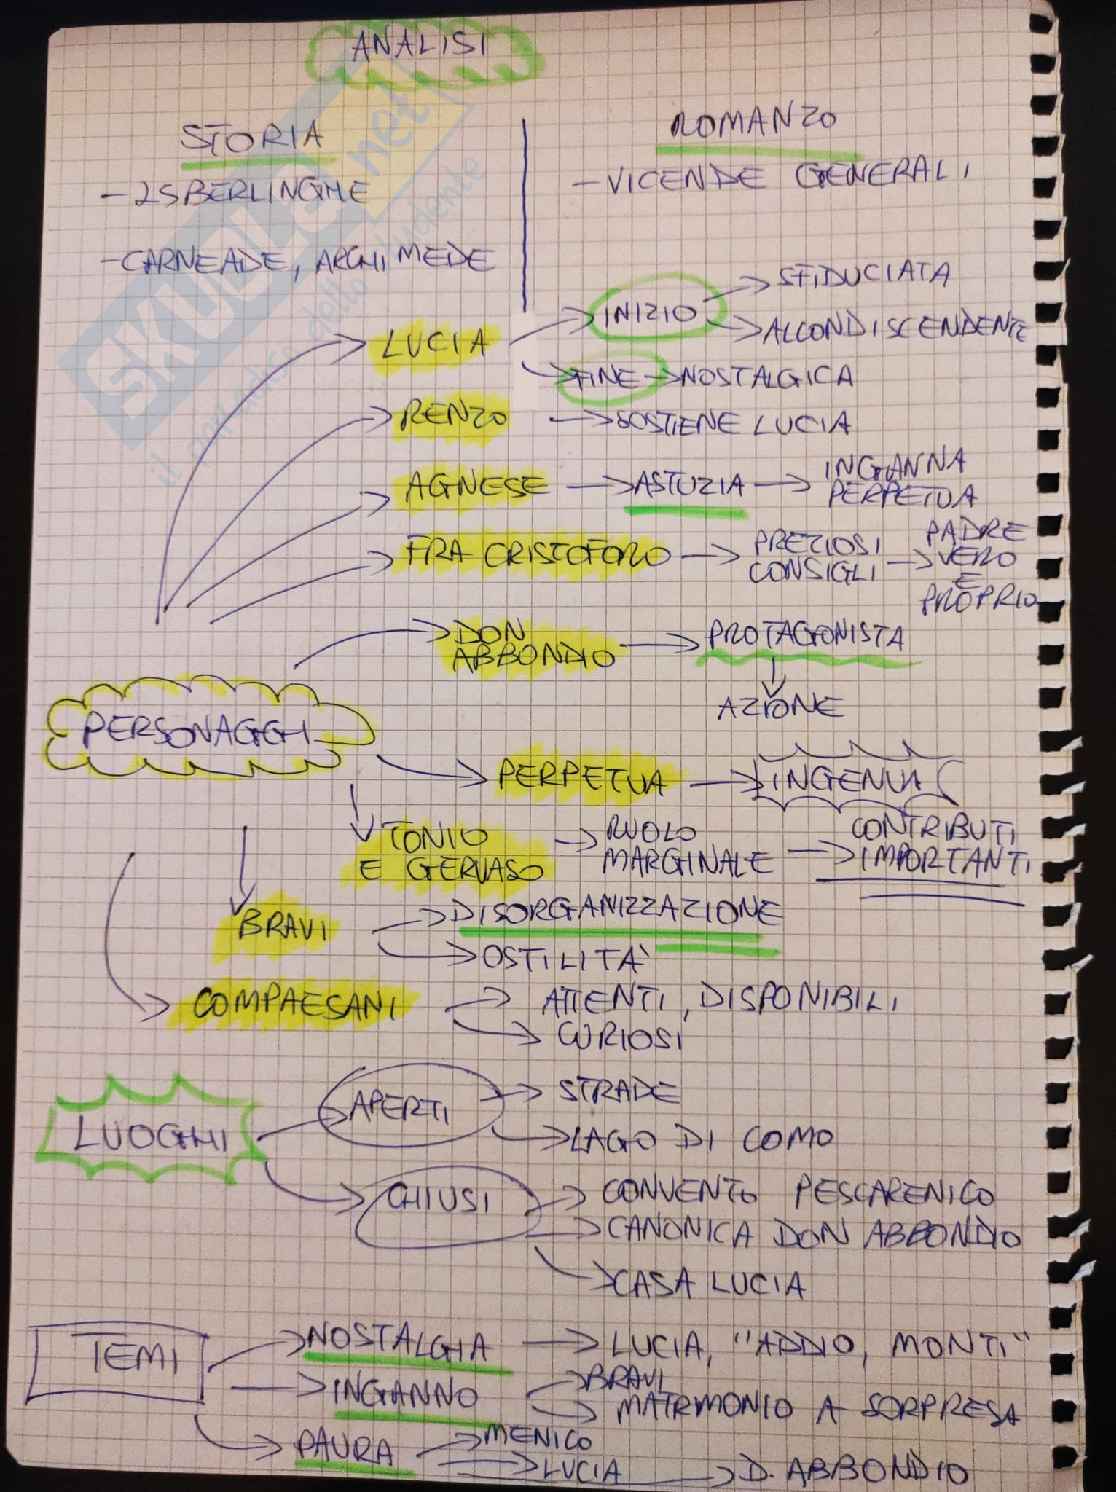 ANALISI
STORIA
ROMANZO
- 25 BERLINGHE
- VICENDE GENERALI
- CARNEADE, ARCHIMEDE
SKUOLA.net
il portale dello studente
LUCIA
INIZIO
SFIDUCIATA
ALCONDISCENDENTE
FINE → NOSTALGICA
RENZO → SOSTIENE LUCIA
AGNESE → ASTUZIA → INGANNA
PERPETUA
FRA CRISTOFORO → PREZIOSI
CONSIGLI → PADRE
VERO
E
PROPRIO
DON
ABBONDIO → PROTAGONISTA
AZIONE
PERSONAGGI
PERPETUA → INGENUA
TONIO
E GERVASO → RUOLO
MARGINALE → CONTRIBUTI
IMPORTANTI
BRAVI → DISORGANIZZAZIONE
→ OSTILITÀ
COMPAESANI → ATTENTI, DISPONIBILI
→ CURIOSI
LUOGHI
APERTI → STRADE
→ LAGO DI COMO
CHIUSI → CONVENTO PESCARENICO
→ CANONICA DON ABBONDIO
→ CASA LUCIA
TEMI
→ NOSTALGIA → LUCIA, "ADDIO, MONTI"
→ INGANNO → BRAVI
→ MATRIMONIO A SORPRESA
→ PAURA → MENICO
→ LUCIA
→ D. ABBONDIO